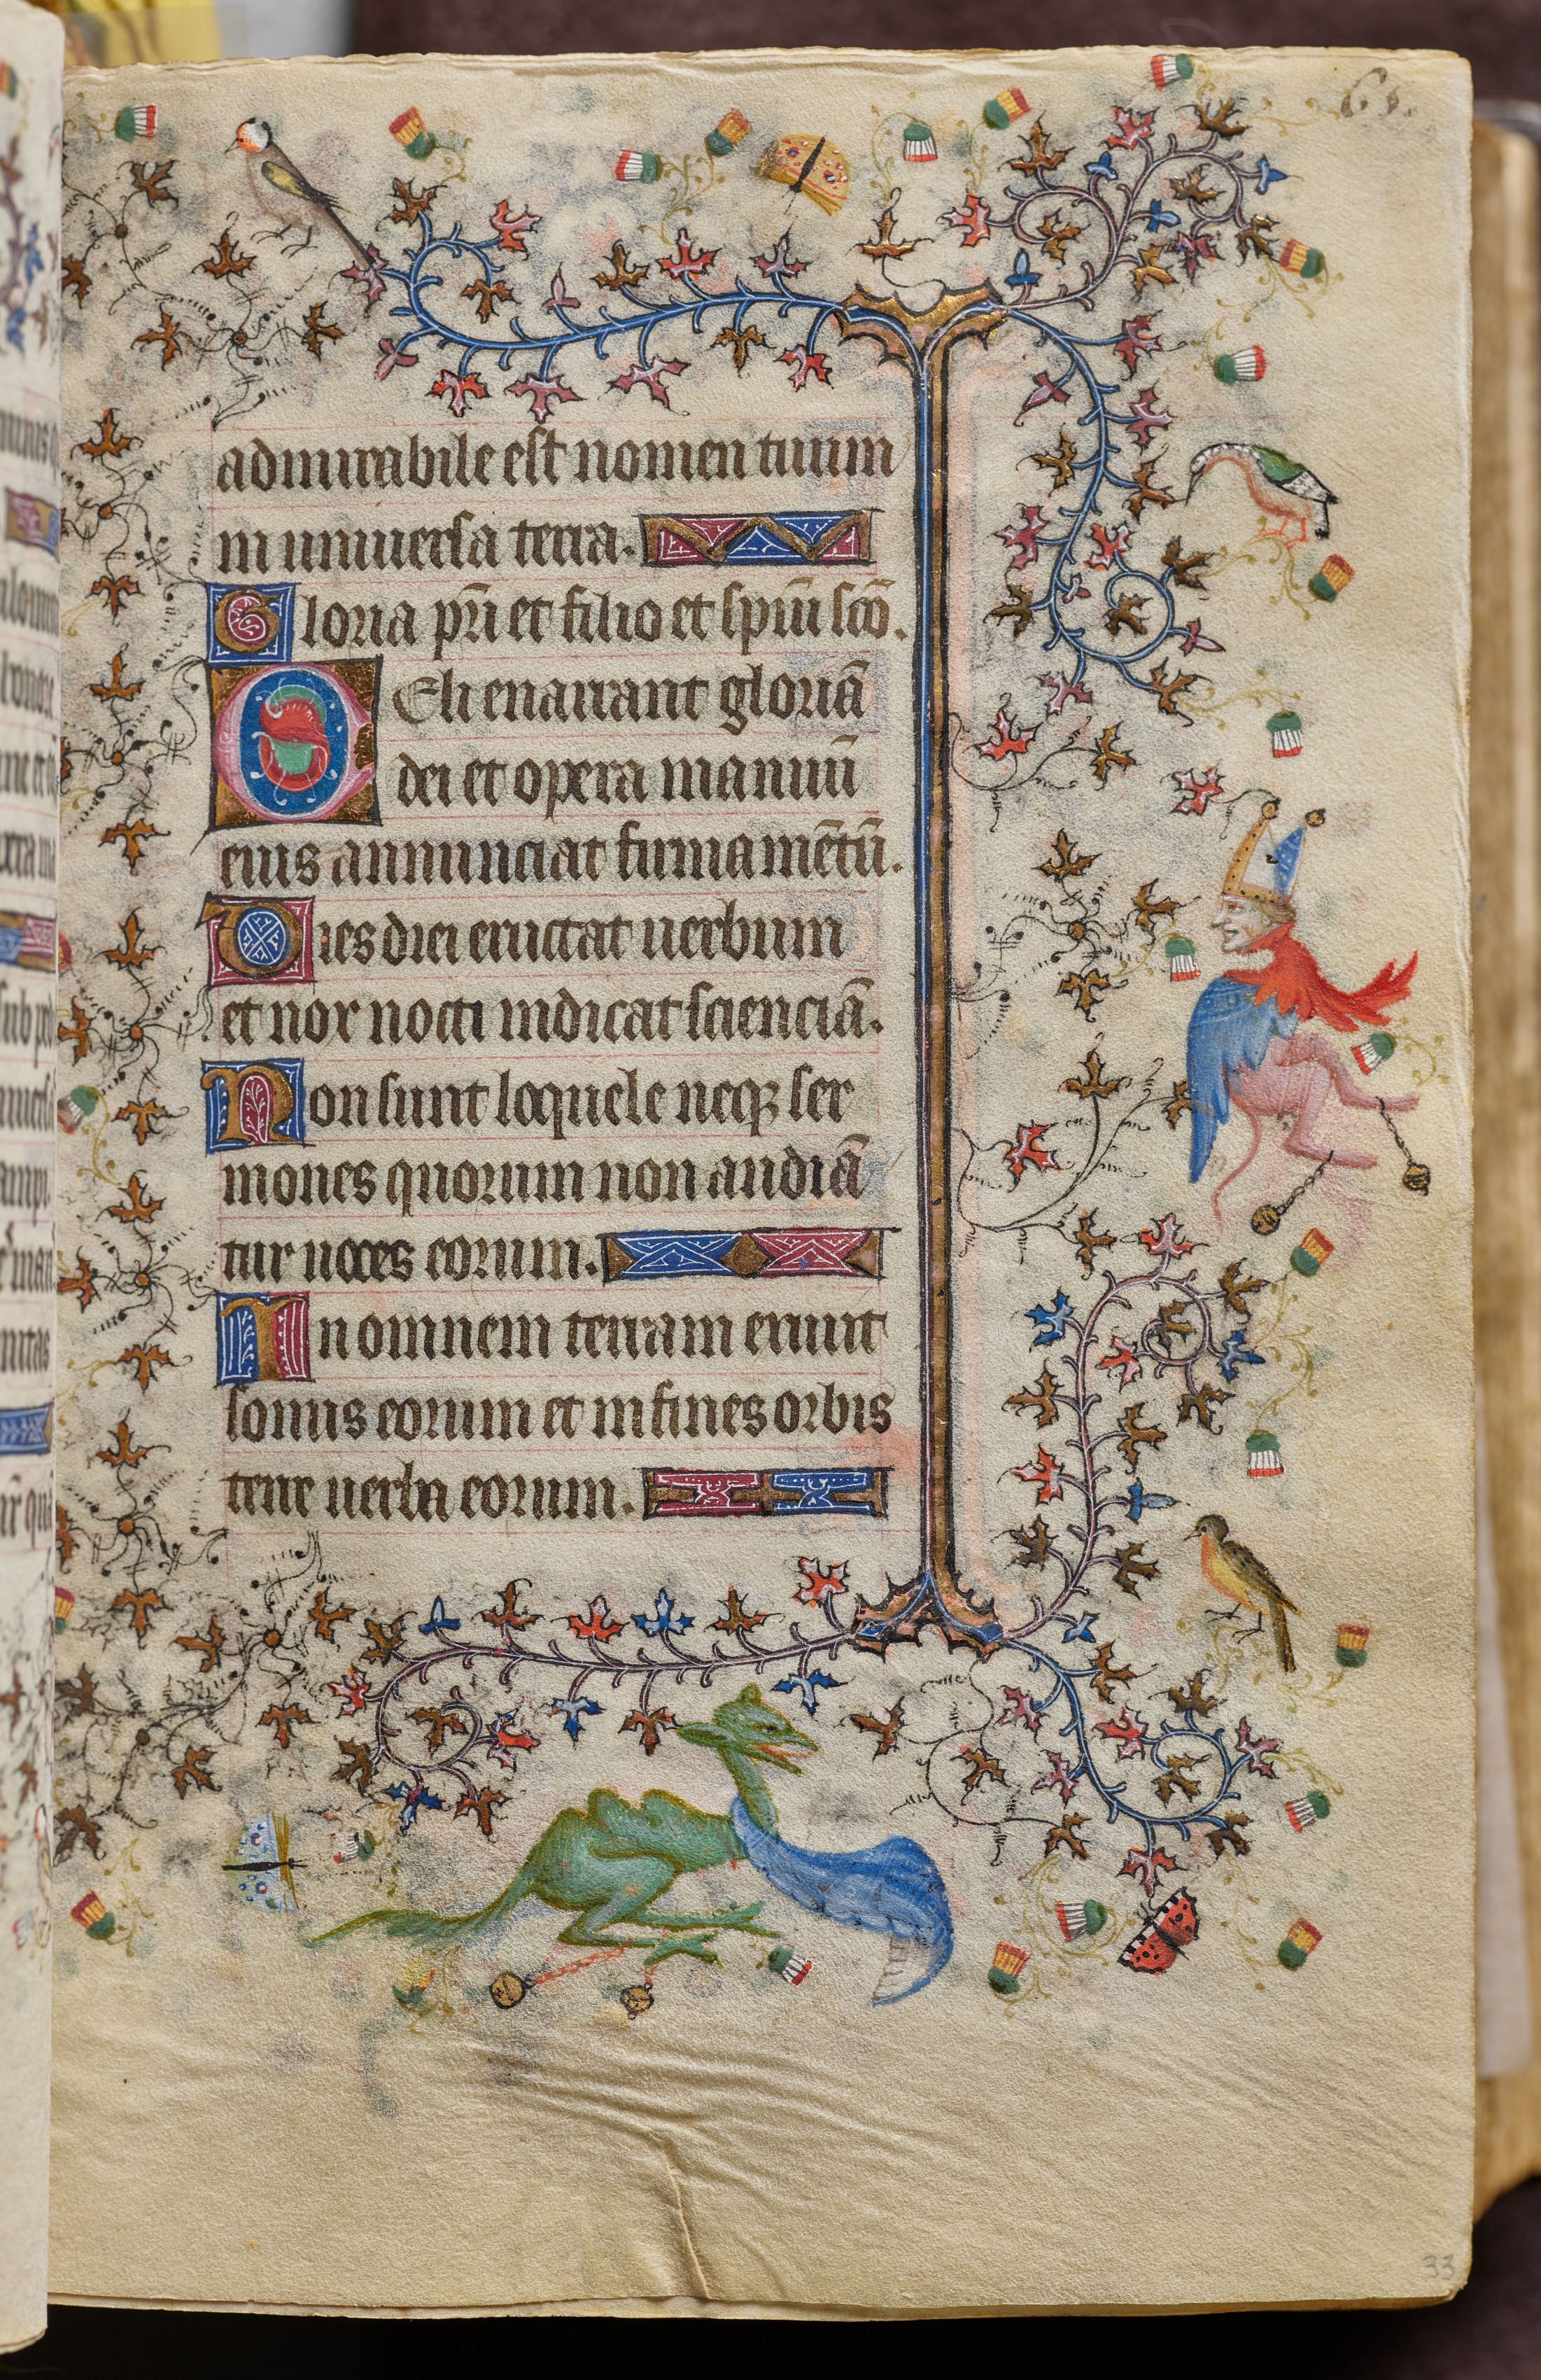 admirabile est nomen tuum
in universa terra.
Gloria pr̄i et filio et spiū scō.
Celi enarrant gloriā
dei et opera manuū
eius annunciat firmamētū.
Dies diei eructat uerbum
et nox nocti indicat scienciā.
Non sunt loquele neqꝫ ser
mones quorum non audiā
tur uoces eorum.
In omnem terram exiuit
sonus eorum et in fines orbis
terre uerba eorum.
33